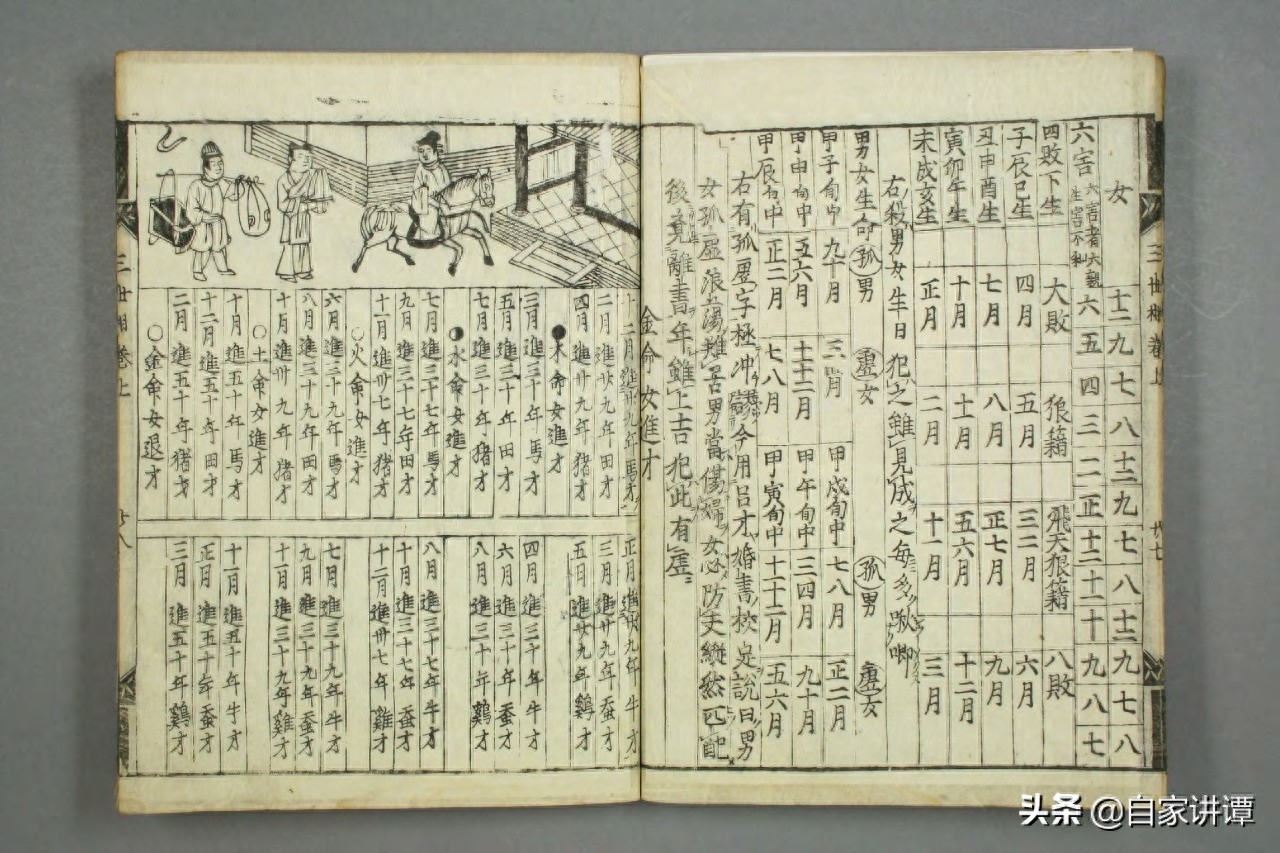 女 十二 九 七 八 十二 九 七 八 十二 九 七 八
六害 六害者六親生害不和 六 五 四 三 二 正 十二 十一 十 九 八 七
四敗下生 大敗 狼籍 飛天狼籍 八敗
子辰巳生 四月 五月 三二月 六月
丑申酉生 七月 八月 正七月 九月
寅卯午生 十月 十一月 五六月 十二月
未戌亥生 正月 二月 十一月 三月
右殺男女生日犯之雖見成之每多啾唧
男女生命孤男 虛女 孤男 虛女
甲子旬中 九十月 三四月 甲戌旬中 七八月 正二月
甲申旬中 五六月 十十二月 甲午旬中 三四月 九十月
甲辰旬中 正二月 七八月 甲寅旬中 十十二月 五六月
右有孤虛字極冲 今用呂才婚書挍定說曰男
女孤虛浪蕩難苦男當傷婦女必防夫縱然匹配
後竟離書年雖上吉犯此有虛
金命女進才
十二月進卅九年馬才
二月進卅九年田才
四月進卅九年猪才
木命女進才
三月進三十年馬才
五月進三十年田才
七月進三十年猪才
水命女進才
七月進三十七年馬才
九月進三十七年田才
十一月進卅七年猪才
火命女進才
六月進三十九年馬才
八月進三十九年田才
十月進卅九年猪才
土命女進才
十月進五十年馬才
十二月進五十年田才
二月進五十年猪才
金命女退才
正月進卅九年牛才
三月進卅九年蚕才
五月進卅九年鷄才
四月進三十年牛才
六月進三十年蚕才
八月進三十年鷄才
八月進三十七年牛才
十月進三十七年蚕才
十二月進卅七年雞才
七月進三十九年牛才
九月進三十九年蚕才
十一月進三十九年雞才
十一月進五十年牛才
正月進五十年蚕才
三月進五十年鷄才
三世相卷上
三世相卷上
头条 @自家讲谭